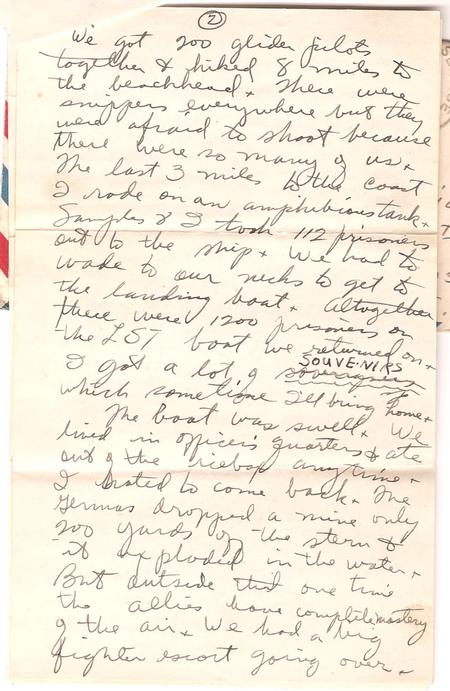 2
We got 200 glider pilots
together & hiked 8 miles to
the beachhead. There were
snippers everywhere but they
were afraid to shoot because
there were so many of us.
The last 3 miles to the coast
I rode on an amphibious tank.
Samples & I took 112 prisoners
out to the ship. We had to
wade to our necks to get to
the landing boat. Altogether
there were 1200 prisoners on
the LST boat we returned on.
SOUVENIRS
I got a lot of
which sometime I'll bring home.
The boat was swell. We
lived in officer's quarters & ate
out of the icebox anytime.
I hated to come back. The
Germas dropped a mine only
200 yards of the stern &
it exploded in the water.
But outside that one time
the allies have complete mastery
of the air. We had a big
fighter escort going over.